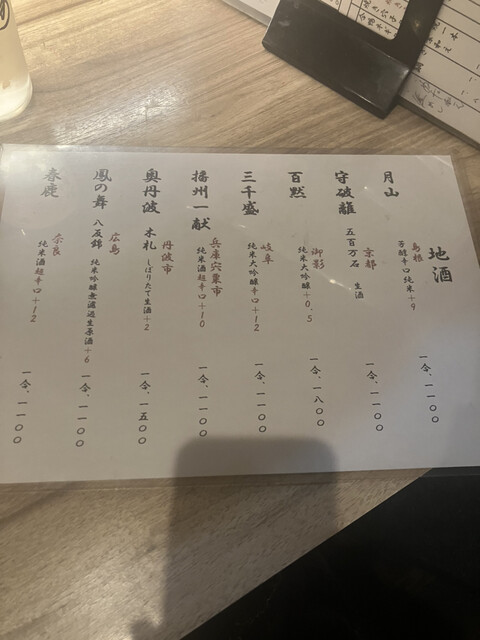 地酒
月山
島根
芳醇辛口純米+9
一合、一一〇〇
守破離
京都
五百万石 生酒
一合、一一〇〇
百黙
御影
純米大吟醸+0.5
一合、一八〇〇
三千盛
岐阜
純米大吟醸+12
一合、一一〇〇
播州一献
兵庫宍粟市
純米酒超辛口+10
一合、一一〇〇
奥丹波
丹波市
木札 しぼりたて生酒+2
一合、一五〇〇
鳳の舞
広島
八反錦 純米吟醸無濾過生原酒+6
一合、一一〇〇
春鹿
奈良
純米酒超辛口+12
一合、一一〇〇